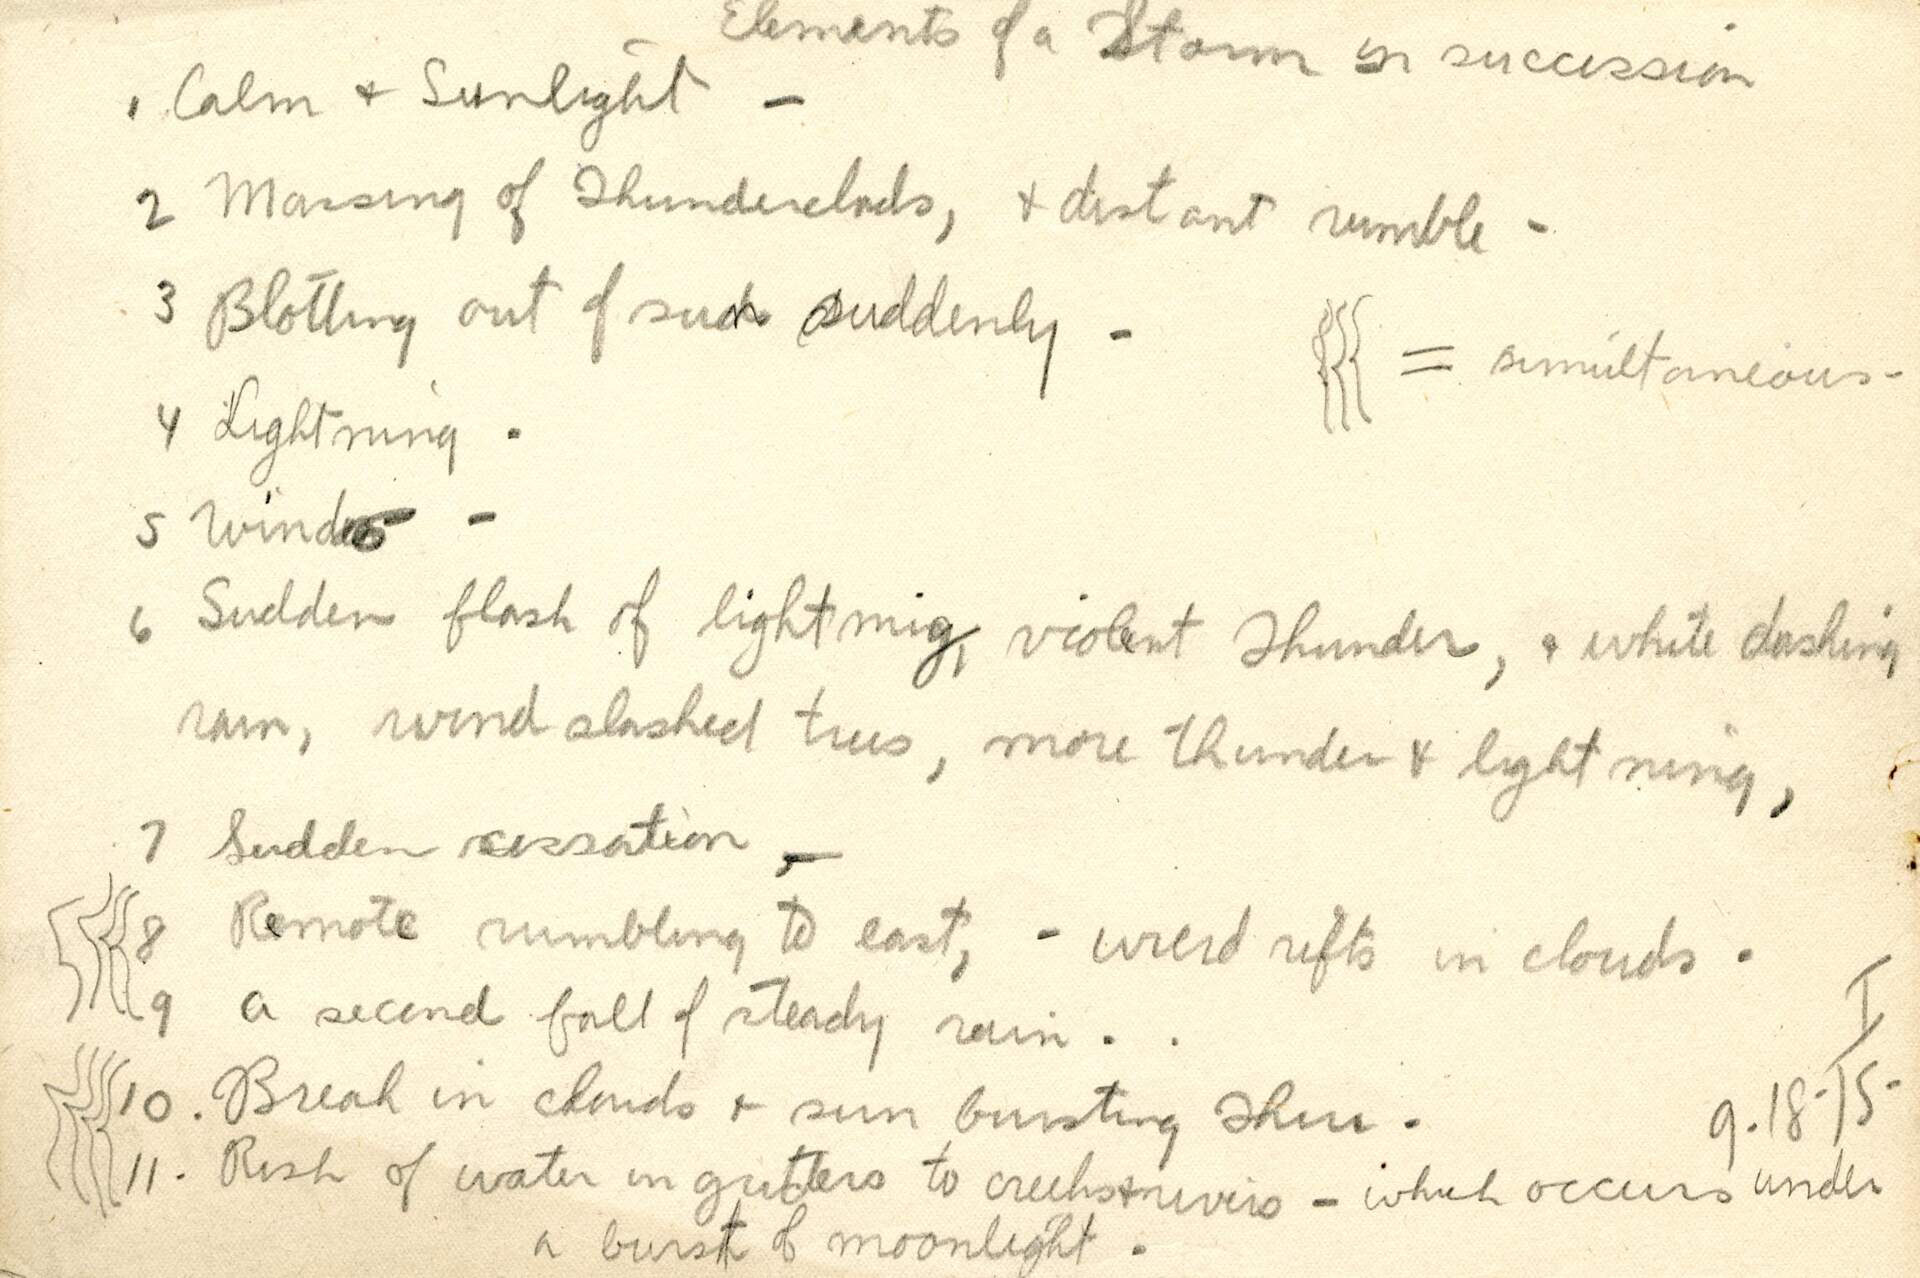 Elements of a Storm in succession
1 Calm + Sunlight -
2 Massing of Thunderclouds, + distant rumble -
3 Blotting out of sun suddenly -
{{{ = simultaneous -
4 Lightning .
5 Wind -
6 Sudden flash of lightnig, violent Thunder, + white dashing
rain, wind slashed trees, more thunder + lightning,
7 Sudden cessation, -
8 Remote rumbling to east, - wierd rifts in clouds .
9 a second fall of steady rain . .
I
10. Break in clouds + sun bursting Thru .
9-18-15-
11. Rush of water in gutters to creeks + rivers - which occurs under
a burst of moonlight .